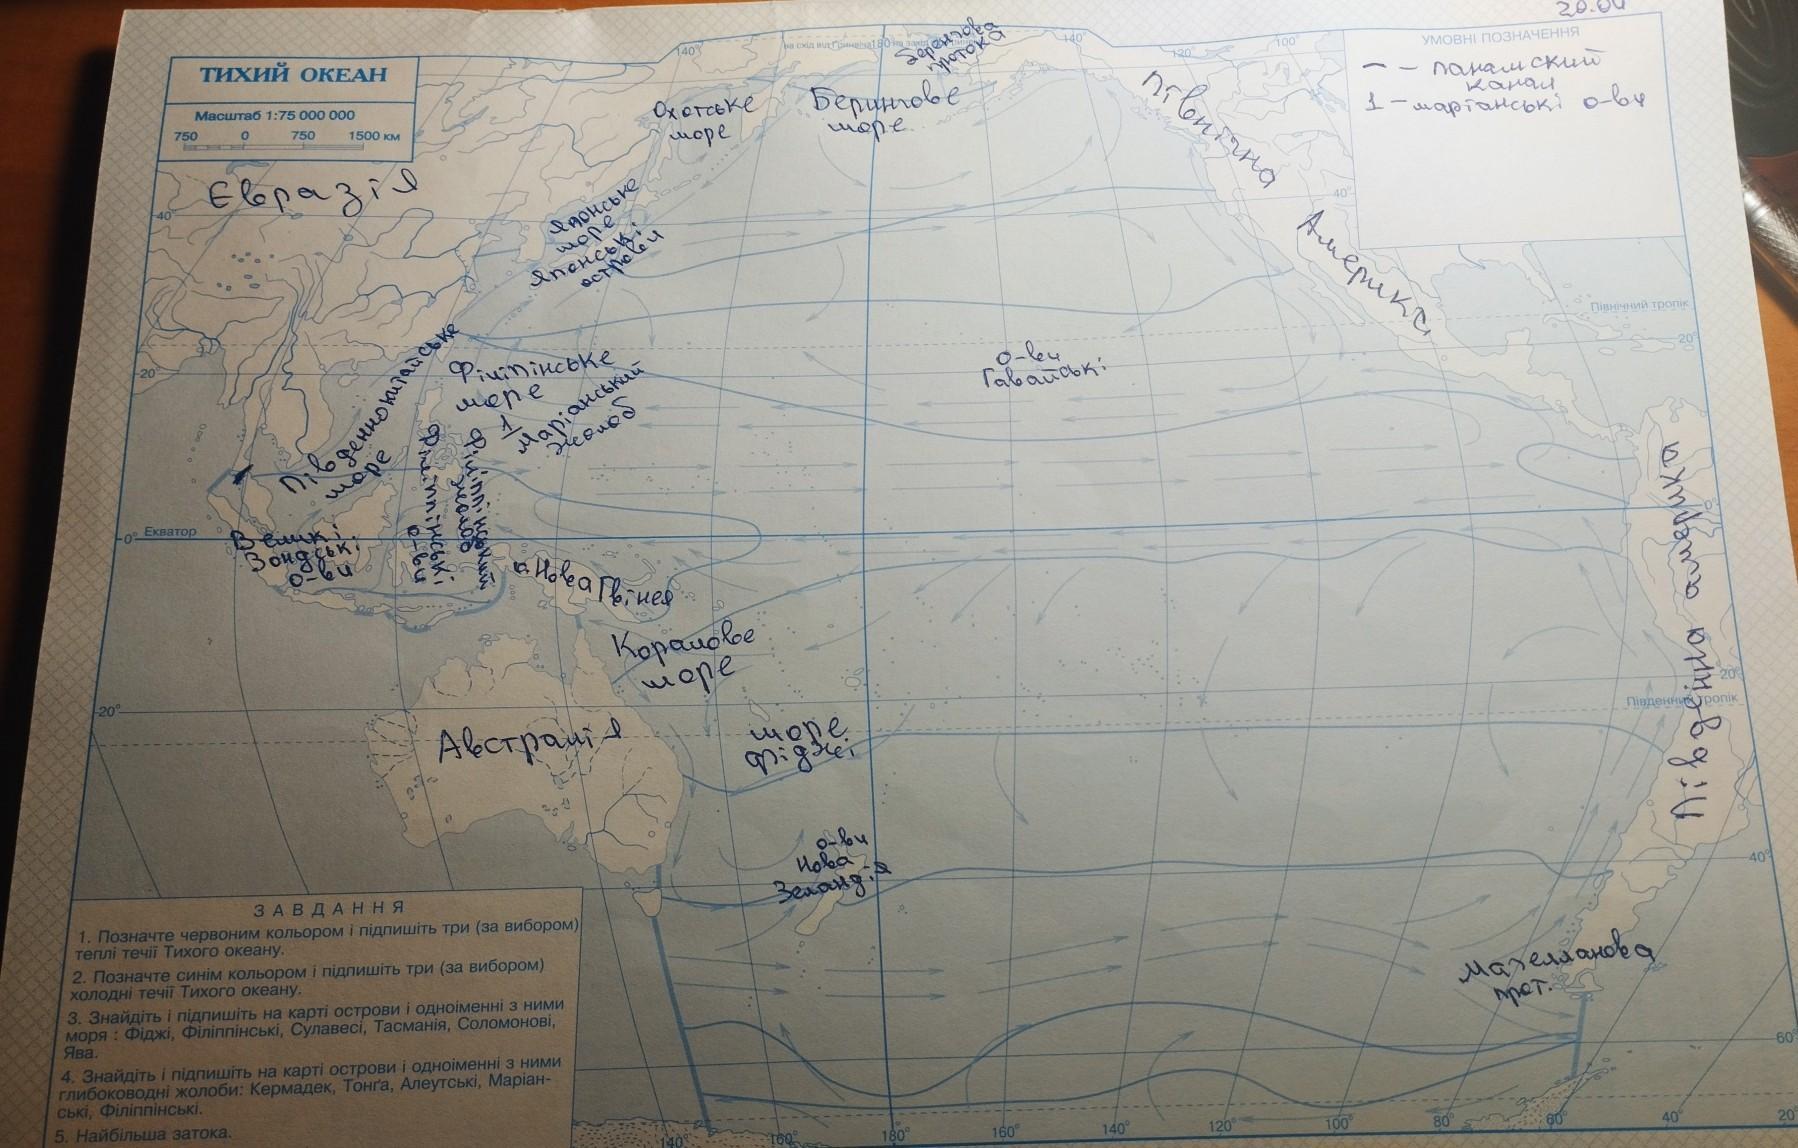 20.04
ТИХИЙ ОКЕАН
Масштаб 1:75 000 000
750 0 750 1500 км
УМОВНІ ПОЗНАЧЕННЯ
— – панамский
канал
1 – маріанські о-ви
140°
180°
140°
120°
100°
Берингова
протока
Охотське
море
Берингове
море
Північна
Америка
Євразія
40°
40°
Японське
море
Японські
острови
Північний тропік
20°
20°
Південнокитайське
море
Філіпінське
море
1
Маріанський
жолоб
о-ви
Гавайські
Філіппінські
о-ви
Філіппінський
жолоб
0°
Екватор
0°
Великі
Зондські
о-ви
о. Нова Гвінея
Коралове
море
Південна америка
20°
20°
Південний тропік
Австралія
море
Фіджі
о-ви
Нова
Зеландія
40°
Магелланова
прот.
60°
ЗАВДАННЯ
1. Позначте червоним кольором і підпишіть три (за вибором)
теплі течії Тихого океану.
2. Позначте синім кольором і підпишіть три (за вибором)
холодні течії Тихого океану.
3. Знайдіть і підпишіть на карті острови і одноіменні з ними
моря : Фіджі, Філіппінські, Сулавесі, Тасманія, Соломонові,
Ява.
4. Знайдіть і підпишіть на карті острови і одноіменні з ними
глибоководні жолоби: Кермадек, Тонґа, Алеутські, Маріан-
ські, Філіппінські.
5. Найбільша затока.
140° 160° 180° 160° 140° 120° 100° 80° 60° 40° 20°